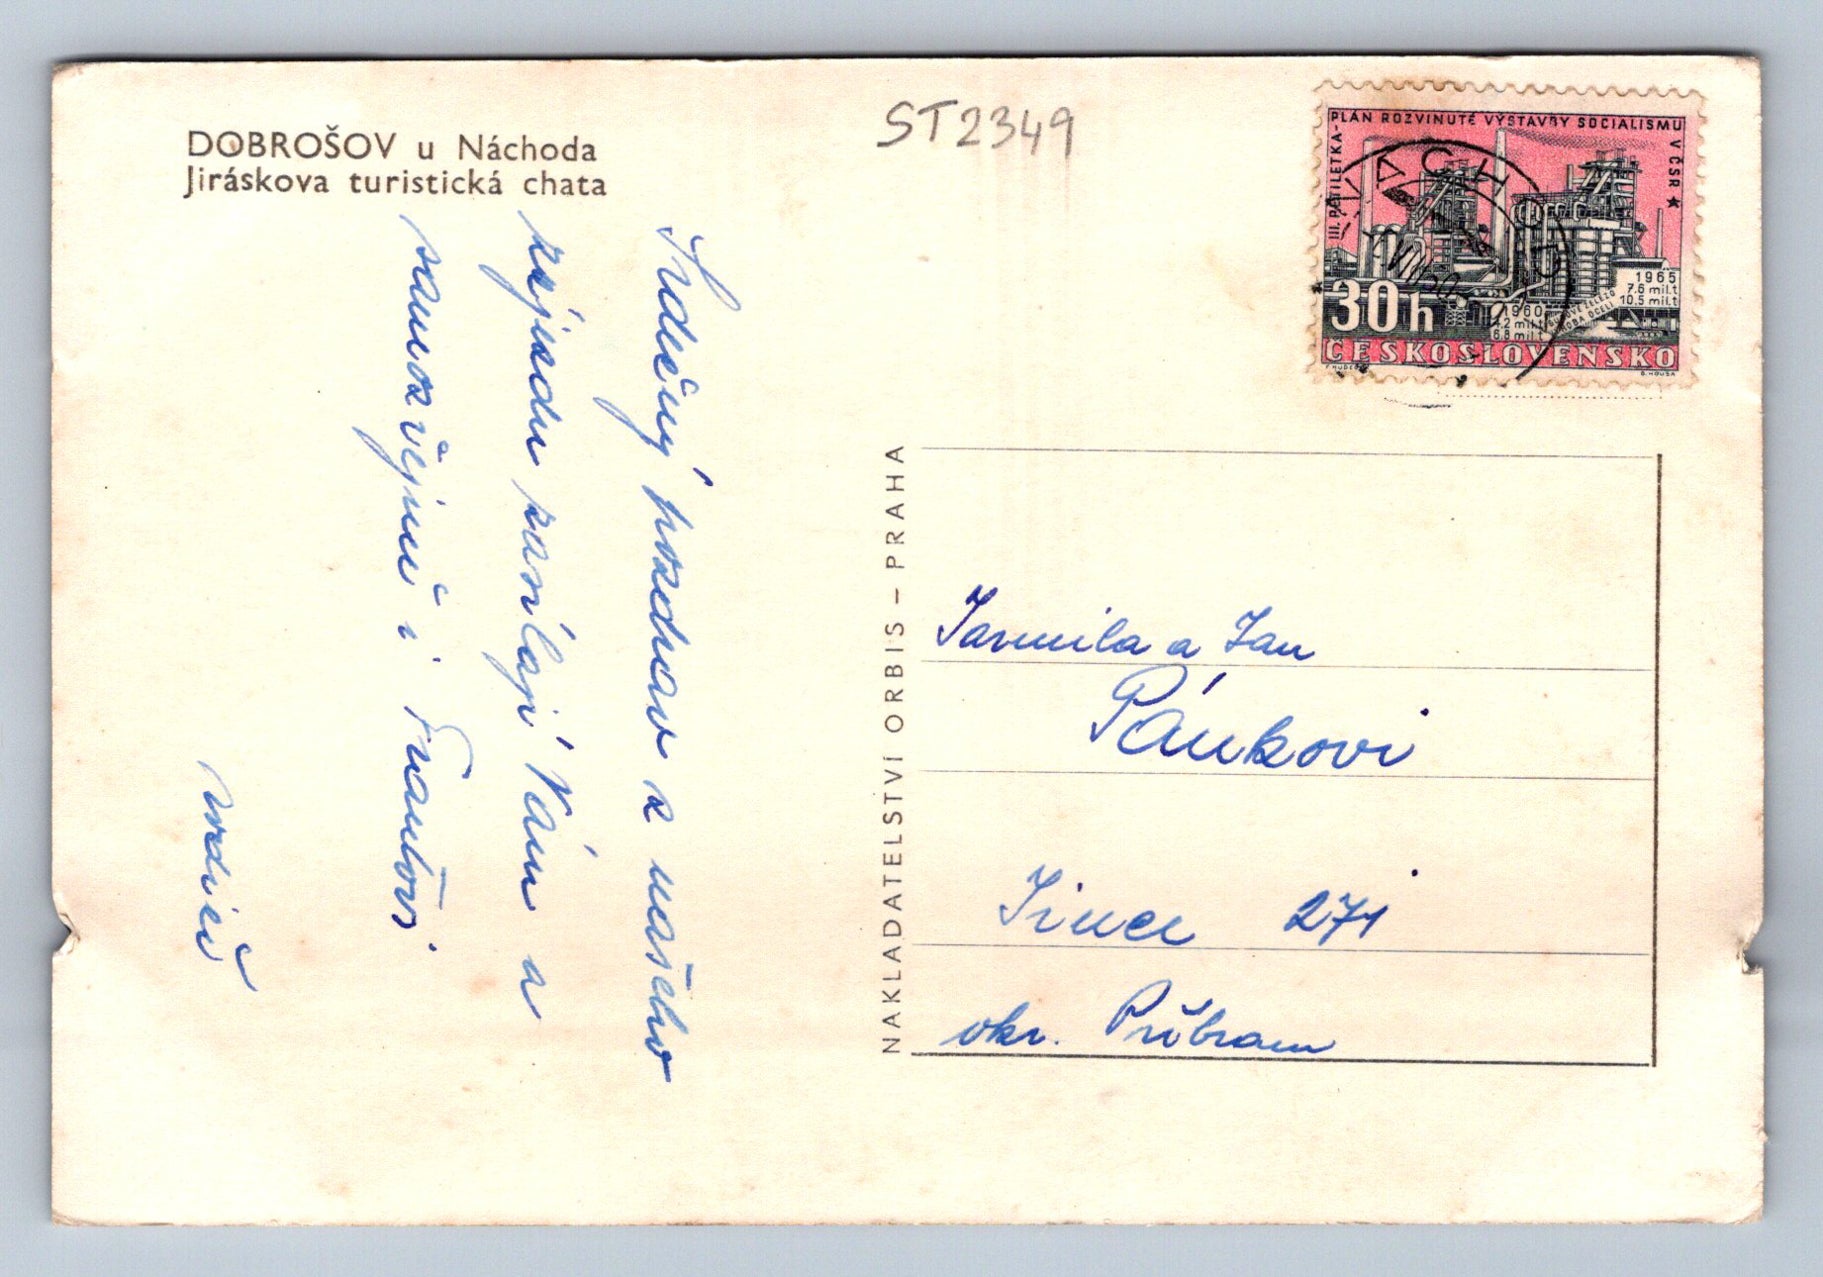 DOBROŠOV u Náchoda
Jiráskova turistická chata
ST2349
III. PĚTILETKA - PLÁN ROZVINUTÉ VÝSTAVBY SOCIALISMU V ČSR ★
1965
7.6 mil.t
10.5 mil.t
1960
4.2 mil.t
6.8 mil.t
30h
ČESKOSLOVENSKO
B. HOUSA
NÁCHOD
Srdečný pozdrav z našeho
zájezdu zasílají Vám a
samozřejmě i Frantovi
rodiče
NAKLADATELSTVÍ ORBIS – PRAHA
Jarmila a Jan
Pánkovi
Jince 271
okr. Příbram